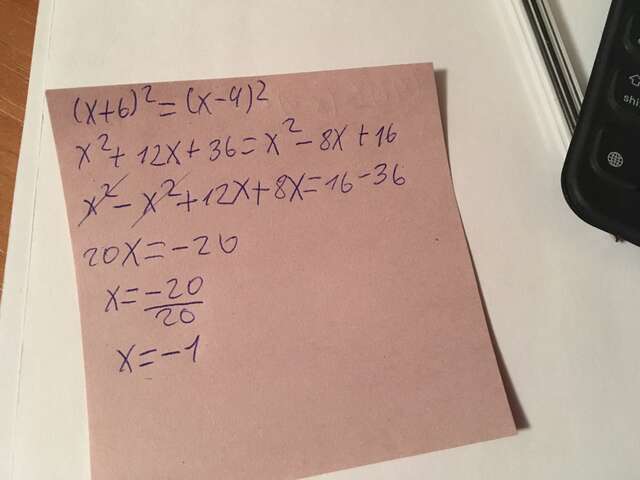 (x+6)² = (x-4)²
x² + 12x + 36 = x² - 8x + 16
x² - x² + 12x + 8x = 16 - 36
20x = -20
x = -20/20
x = -1
shi